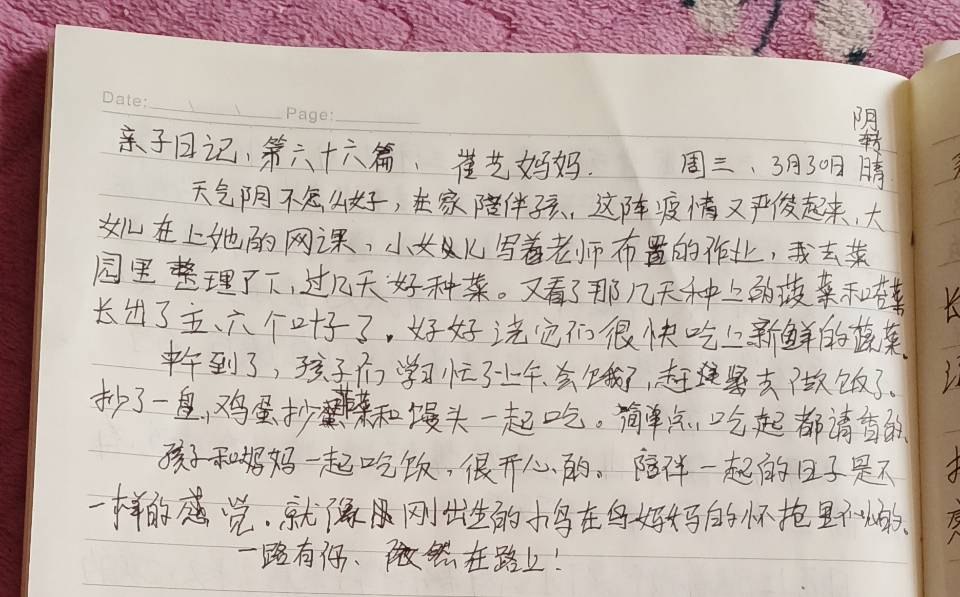 Date: Page:
亲子日记、第六十六篇、 妈妈. 周三、3月30日 阴转晴
天气阴不怎么好，在家陪伴孩、这阵疫情又严俊起来、大
女儿在上她的网课、小女儿写着老师布置的作业，我去菜
园里整理了下、过几天好种菜。又看了那几天种上的菠菜和
长出了五、六个叶子了。好好 它们很快吃上新鲜的蔬菜。
中午到了，孩子们学习忙了上午、会饿了，赶紧去做饭了。
抄了一盘、鸡蛋抄 和馒头一起吃。简单点、吃起都 的、
孩子和妈妈一起吃饭、很开心的。陪伴一起的日子是不
一样的感觉. 就像 刚出生的小鸟在鸟妈妈的怀抱里 的、
一路有你、 在路上！